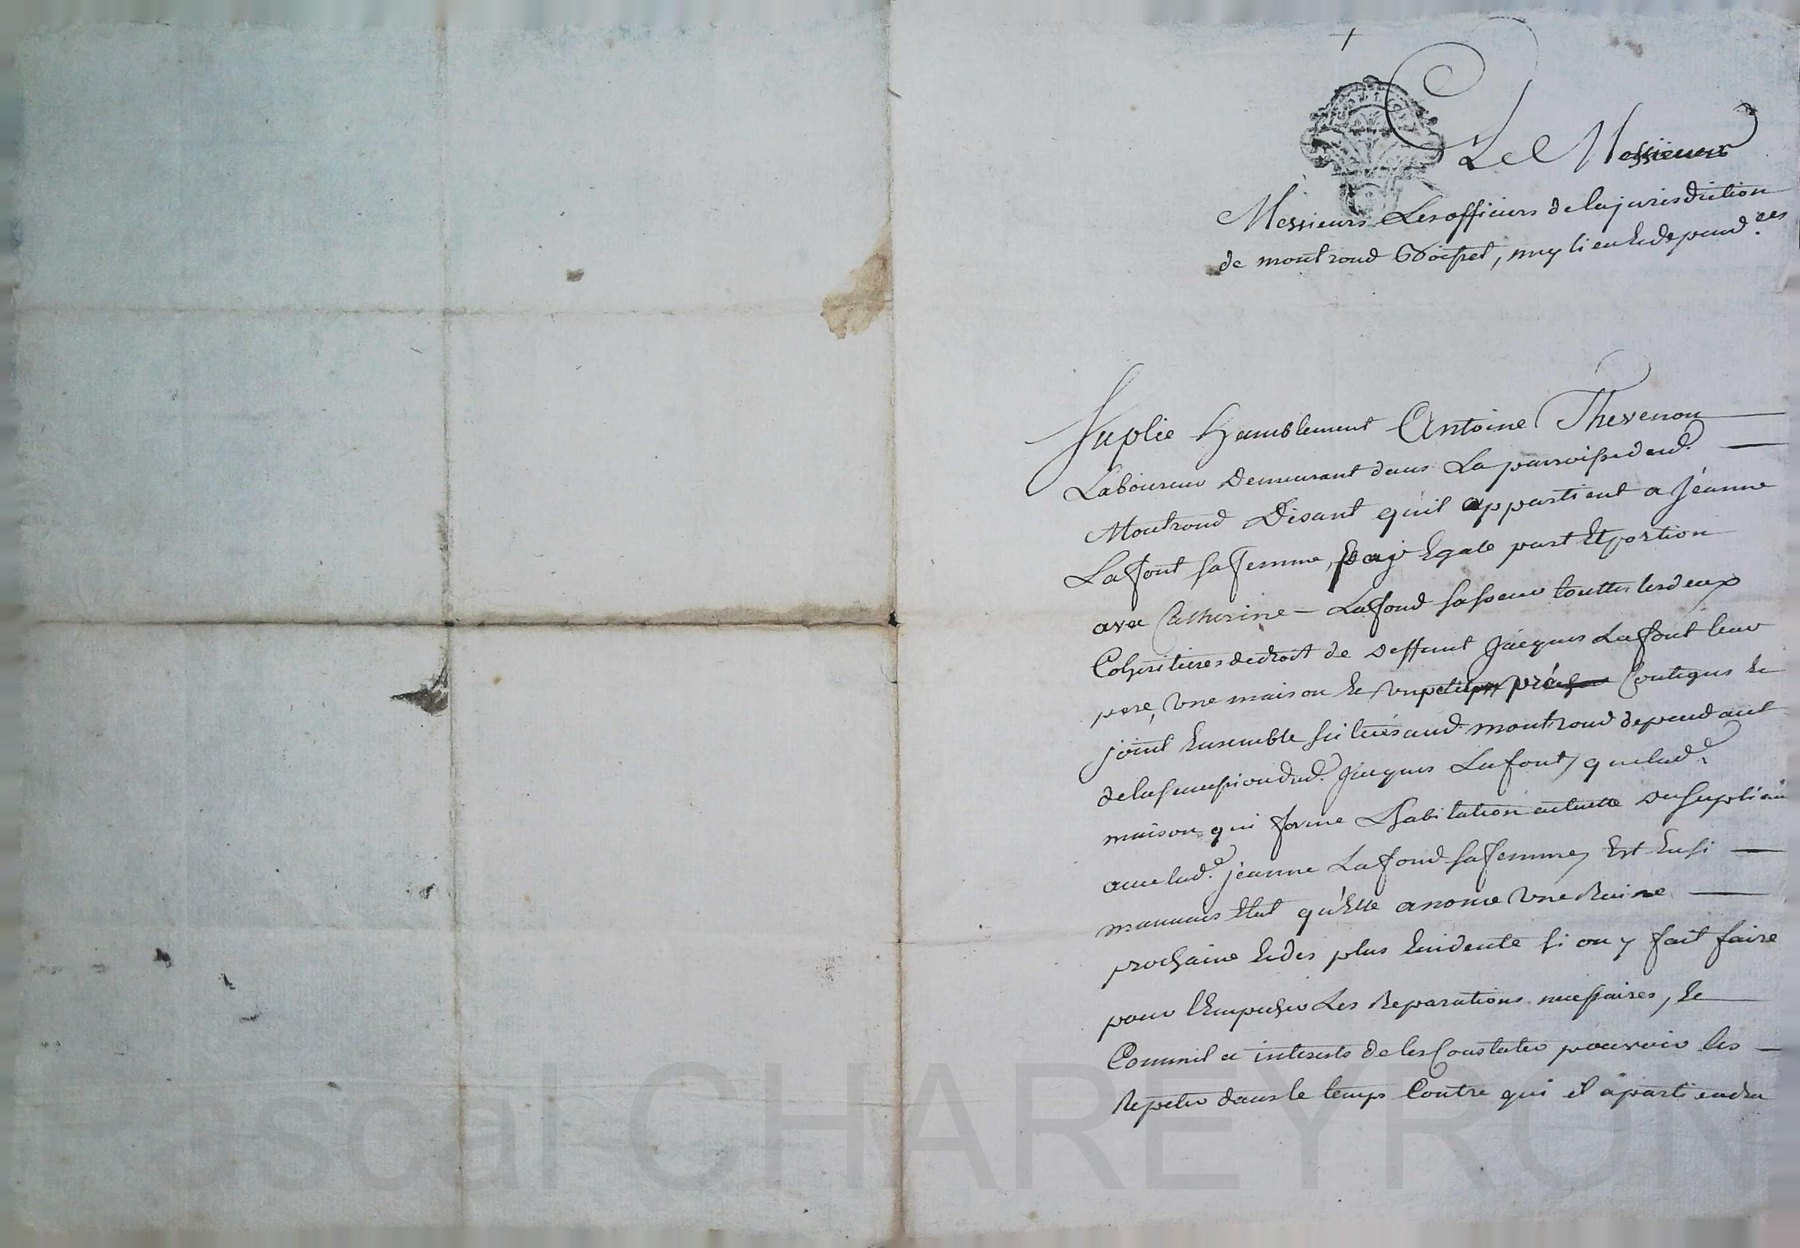 Messieurs
Messieurs Les officiers de la jurisdiction
de montrond Boisset, meylieu & depend.ces
Suplie humblement Antoine Thevenon
Laboureur Demeurant dans La parroisse dud.
Montrond Disant qu'il appartient a jeanne
Lafont sa femme, par Egale part Et portion
avec Catherine Lafond sa soeur touttes les deux
Coheritieres de droit de deffunt jacques Lafont leur
pere, une maison & un petit Contigus &
joint Ensemble scitués aud montrond dependant
de la succession dud. jacques Lafont, que lad.
maison qui forme L'habitation actuelle du supliant
avec lad.e jeanne Lafond sa femme, Est En si
mauvais Etat qu'Elle anonce une Ruine
prochaine & des plus Evidente si on y fait faire
pour l'Empecher Les Reparations necessaires, &
Comme il a interets de les Constater pouvoir les
Repeter dans le temps Contre qui il apartiendra
Pascal CHAREYRON